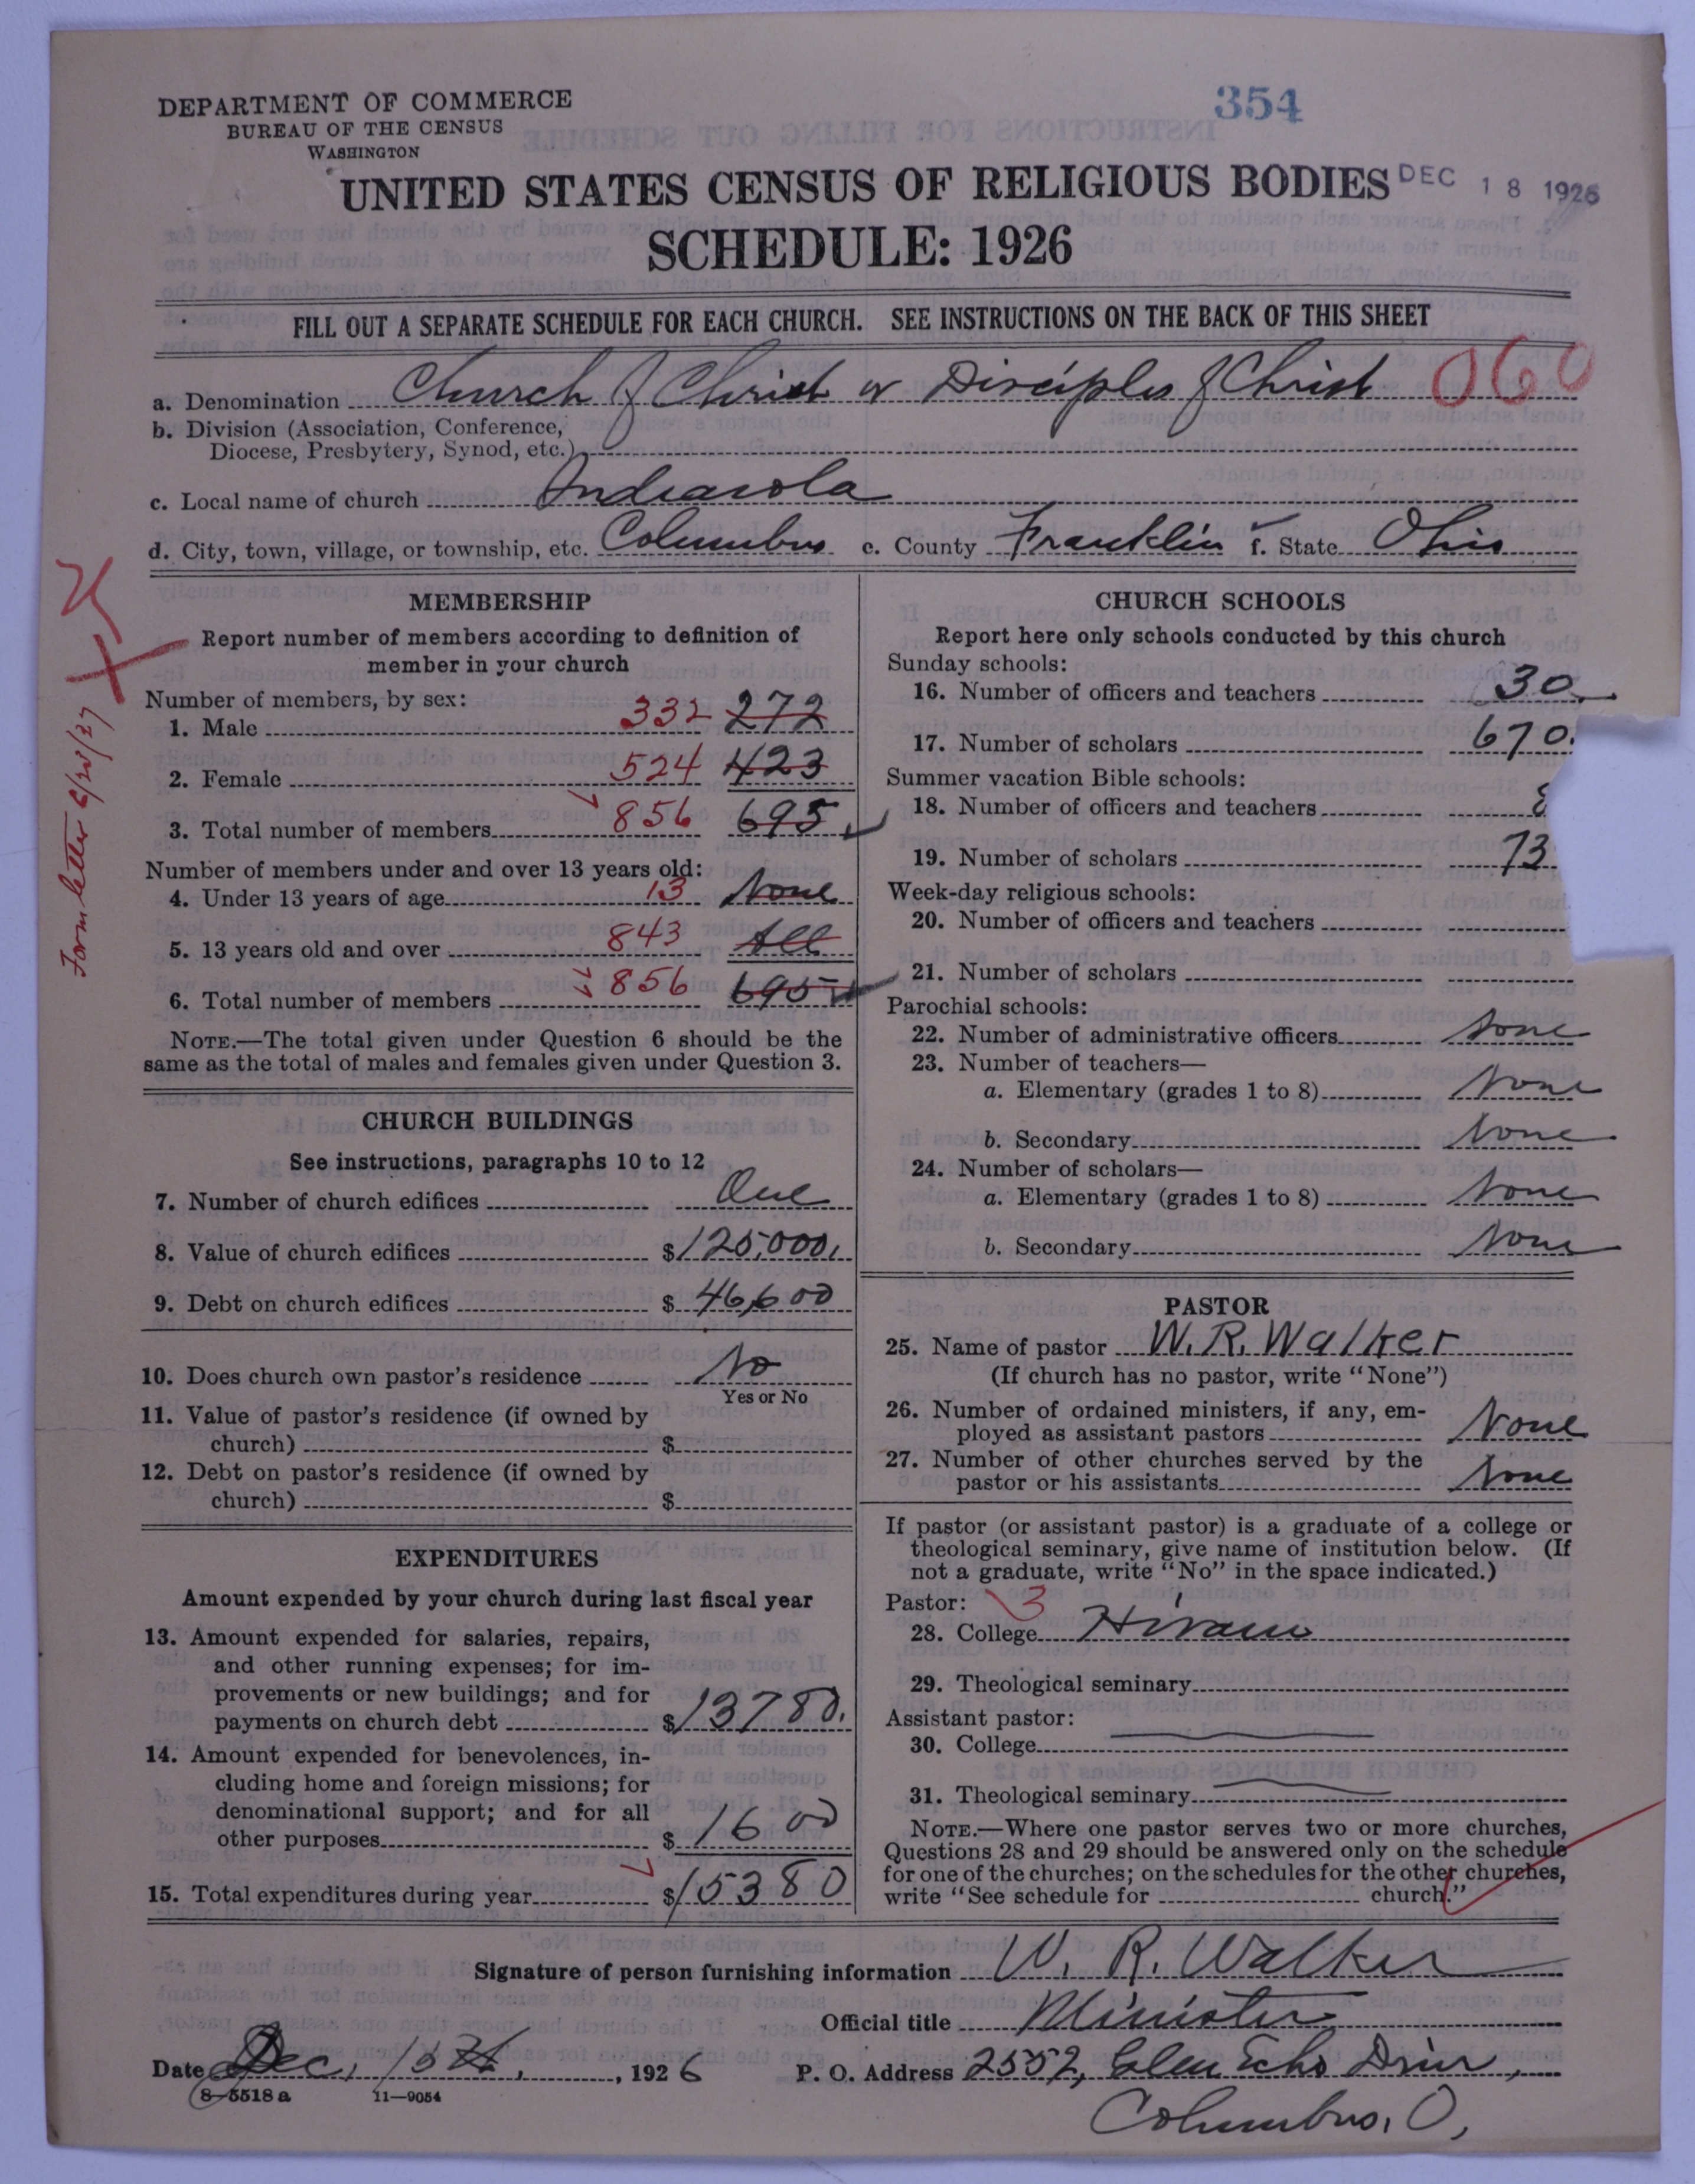 354
DEPARTMENT OF COMMERCE
BUREAU OF THE CENSUS
WASHINGTON
UNITED STATES CENSUS OF RELIGIOUS BODIES DEC 18 1926
SCHEDULE: 1926
FILL OUT A SEPARATE SCHEDULE FOR EACH CHURCH. SEE INSTRUCTIONS ON THE BACK OF THIS SHEET
a. Denomination Church of Christ or Disciples of Christ 060
b. Division (Association, Conference,
Diocese, Presbytery, Synod, etc.)
c. Local name of church Indianola
d. City, town, village, or township, etc. Columbus e. County Franklin f. State Ohio
MEMBERSHIP
Report number of members according to definition of
member in your church
Number of members, by sex:
1. Male 332 272
2. Female 524 423
3. Total number of members 856 695
Number of members under and over 13 years old:
4. Under 13 years of age 13 None
5. 13 years old and over 843 All
6. Total number of members 856 695
NOTE.—The total given under Question 6 should be the
same as the total of males and females given under Question 3.
Form letter 6/20/27
CHURCH BUILDINGS
See instructions, paragraphs 10 to 12
7. Number of church edifices One
8. Value of church edifices $125,000.
9. Debt on church edifices $46600
10. Does church own pastor's residence No
Yes or No
11. Value of pastor's residence (if owned by
church) $
12. Debt on pastor's residence (if owned by
church) $
EXPENDITURES
Amount expended by your church during last fiscal year
13. Amount expended for salaries, repairs,
and other running expenses; for im-
provements or new buildings; and for
payments on church debt $13780.
14. Amount expended for benevolences, in-
cluding home and foreign missions; for
denominational support; and for all
other purposes $1600
15. Total expenditures during year $15380
CHURCH SCHOOLS
Report here only schools conducted by this church
Sunday schools:
16. Number of officers and teachers 30
17. Number of scholars 670.
Summer vacation Bible schools:
18. Number of officers and teachers
19. Number of scholars 73
Week-day religious schools:
20. Number of officers and teachers
21. Number of scholars
Parochial schools:
22. Number of administrative officers None
23. Number of teachers—
a. Elementary (grades 1 to 8) None
b. Secondary None
24. Number of scholars—
a. Elementary (grades 1 to 8) None
b. Secondary None
PASTOR
25. Name of pastor W. R. Walker
(If church has no pastor, write "None")
26. Number of ordained ministers, if any, em-
ployed as assistant pastors None
27. Number of other churches served by the
pastor or his assistants None
If pastor (or assistant pastor) is a graduate of a college or
theological seminary, give name of institution below. (If
not a graduate, write "No" in the space indicated.)
Pastor: 3
28. College Hiram
29. Theological seminary
Assistant pastor:
30. College
31. Theological seminary
NOTE.—Where one pastor serves two or more churches,
Questions 28 and 29 should be answered only on the schedule
for one of the churches; on the schedules for the other churches,
write "See schedule for church."
Signature of person furnishing information W. R. Walker
Official title Minister
Date Dec. , 1926 P. O. Address 2552, Glen Echo Drive,
8-5518 a 11—9054
Columbus, O,